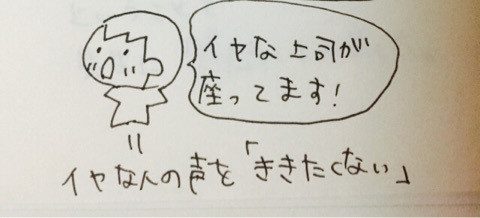 イヤな上司が
座ってます!
=
イヤな人の声を「ききたくない」